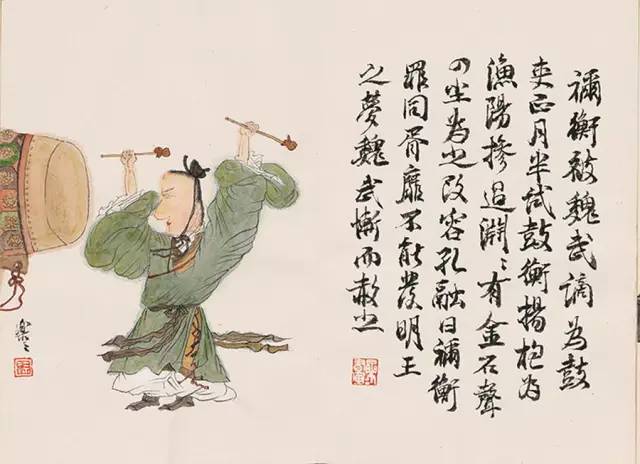 禰衡被魏武謫為鼓
吏正月半試鼓衡揚枹為
漁陽摻過淵〻有金石聲
四坐為之改容孔融曰禰衡
罪同胥靡不能發明王
之夢魏武慚而赦之